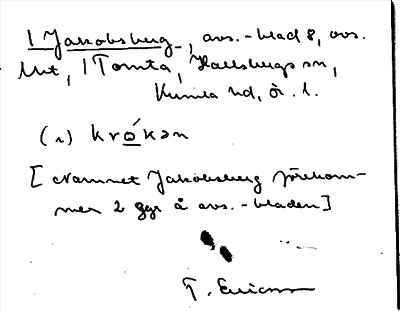 1 Jakobsberg, avs.-blad 8, avs.
Unt, 1 Tomta, Hallsbergs sn,
Kumla hd, Ör. l.
(1) krókən
[Namnet Jakobsberg förekom-
mer 2 ggr å avs.-bladen]
T. Ericsson